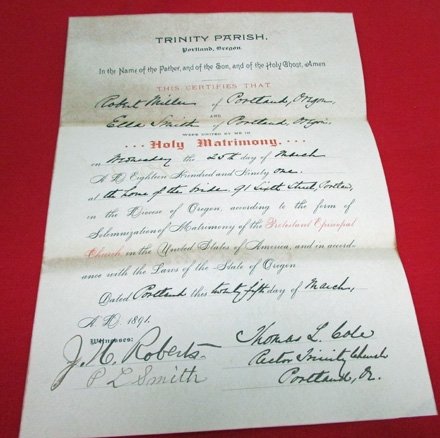 TRINITY PARISH,
Portland, Oregon.
In the Name of the Father, and of the Son, and of the Holy Ghost, Amen
THIS CERTIFIES THAT
Robert Miller of Portland, Oregon,
AND
Ella Smith of Portland, Oregon.
WERE UNITED BY ME IN
Holy Matrimony.
on Wednesday the 25th day of March
A. D. Eighteen Hundred and Ninety one.
at the home of the bride 91 Sixth Street, Portland,
in the Diocese of Oregon, according to the form of
Solemnization of Matrimony of the Protestant Episcopal
Church in the United States of America, and in accord-
ance with the Laws of the State of Oregon
Dated Portland this twenty fifth day of March,
A. D. 1891.
Witnesses:
J. H. Roberts.
P L Smith
Thomas L. Cole
Rector Trinity Church
Portland, Or.